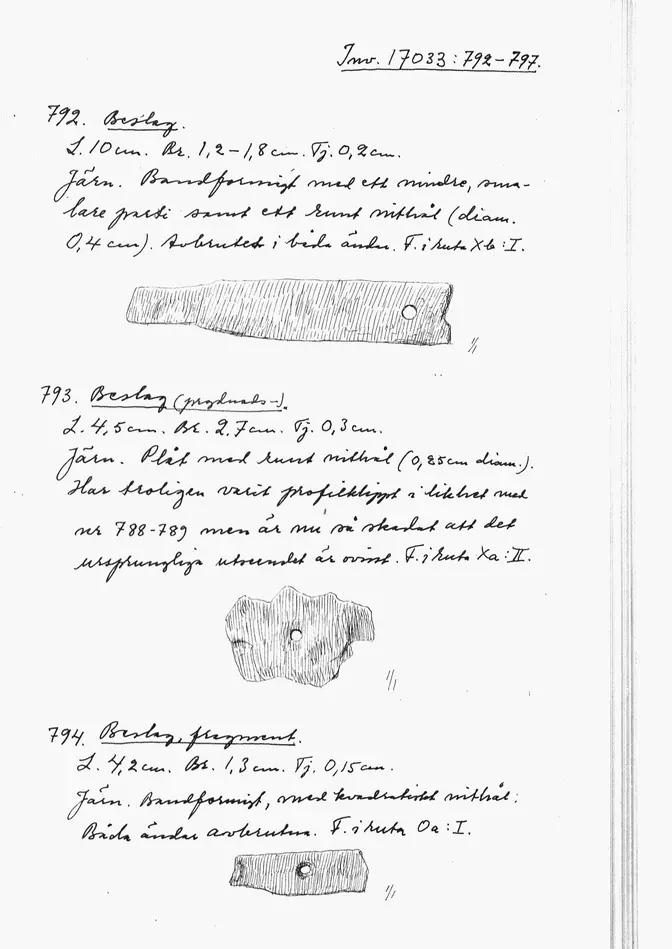 Inv. 17033:792-797.
792. Beslag.
L. 10 cm. Br. 1,2-1,8 cm. Tj. 0,2 cm.
Järn. Bandformigt med ett mindre, sma-
lare parti samt ett runt nithål (diam.
0,4 cm). Avbrutet i båda ändar. F. i ruta Xb:I.
1/1
793. Beslag (prydnads-).
L. 4,5 cm. Br. 2,7 cm. Tj. 0,3 cm.
Järn. Plåt med runt nithål (0,25 cm diam.).
Har troligen varit profilklippt i likhet med
nr 788-789 men är nu så skadat att det
ursprungliga utseendet är ovisst. F. i ruta Xa:II.
1/1
794. Beslag, fragment.
L. 4,2 cm. Br. 1,3 cm. Tj. 0,15 cm.
Järn. Bandformigt, med kvadratiskt nithål.
Båda ändar avbrutna. F. i ruta Oa:I.
1/1